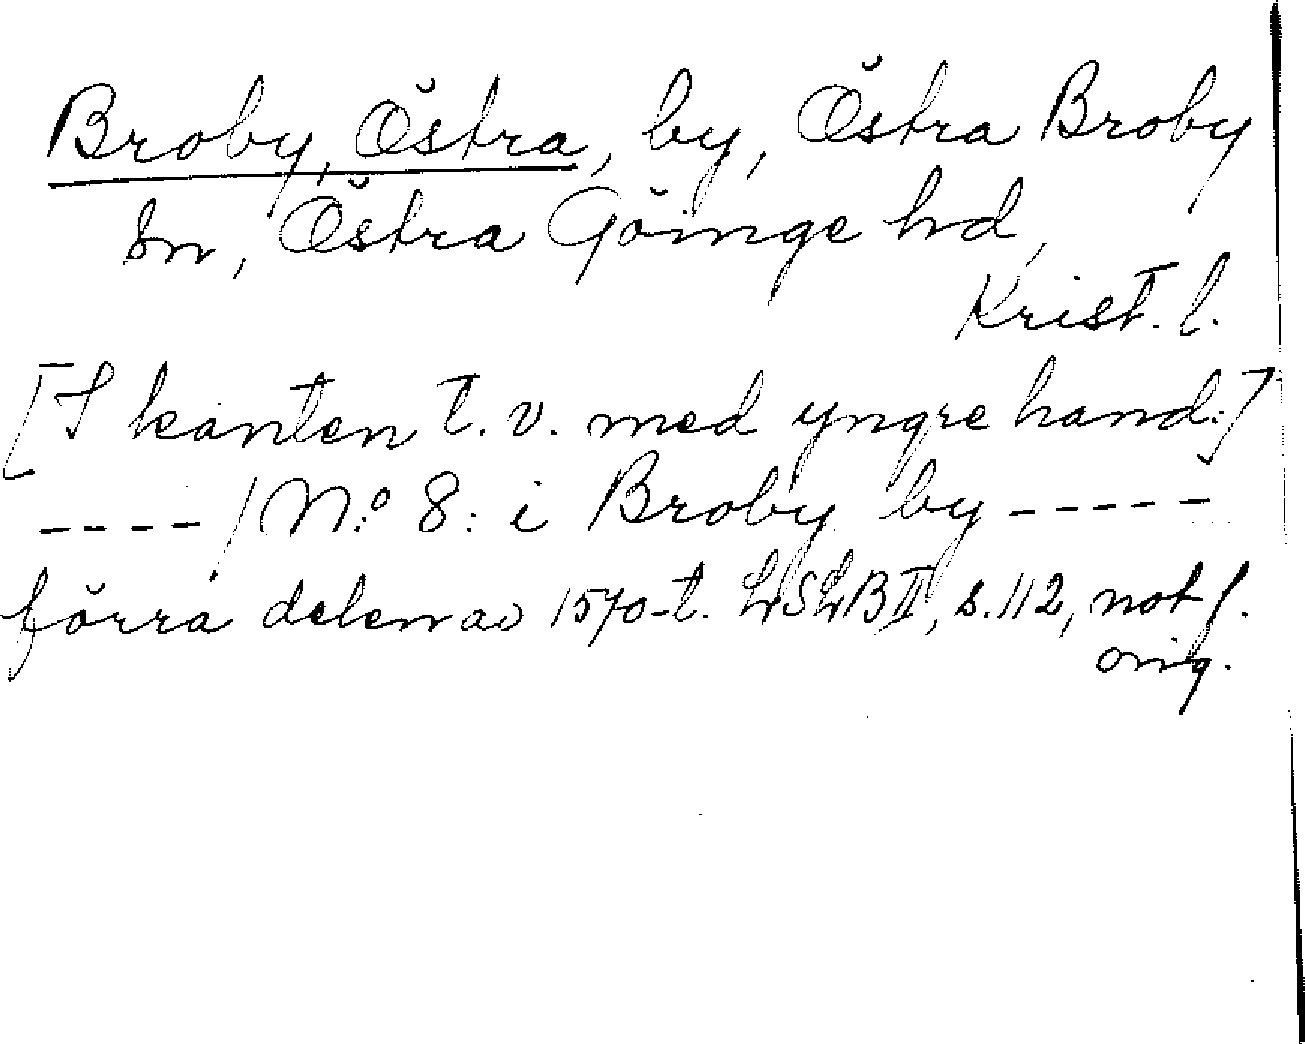 Broby, Östra, by, Östra Broby
sn, Östra Göinge hd,
Krist. l.
[I kanten t. v. med yngre hand:]
---- / N:o 8: i Broby by -----
förra delen av 1570-t. LSLB II, s. 112, not f.
orig.